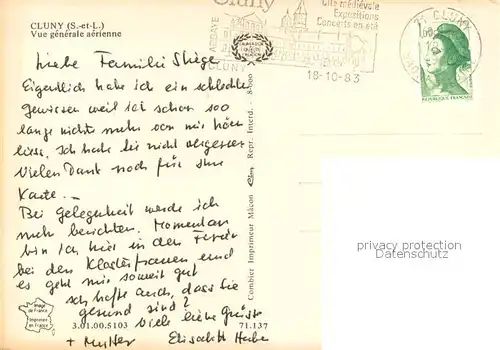 CLUNY (S.-et-L.)
Vue générale aérienne
Liebe Familie Stege
Eigentlich habe ich ein schlechtes
gewissen weil ich schon soo
lange nicht mehr von mir hören
liess. Ich habe Sie nicht vergessen
Vielen Dank noch für Ihre
Karte. —
Bei Gelegenheit werde ich
mehr berichten. Momentan
bin ich hier in den Ferien
bei den Klosterfrauen und
es geht mir soweit gut
ich hoffe auch, dass Sie
gesund sind?
Viele liebe Grüsse
+ Mutter Elisabeth
Image de France
Imprimée en France
3.01.00.5103
71.137
Combier Imprimeur Mâcon
Repr. Interd.
Cluny
Cité médiévale
Expositions
Concerts en été
ABBAYE
CLUNY
18-10-83
71 CLUNY
1,60
REPUBLIQUE FRANÇAISE
privacy protection
Datenschutz